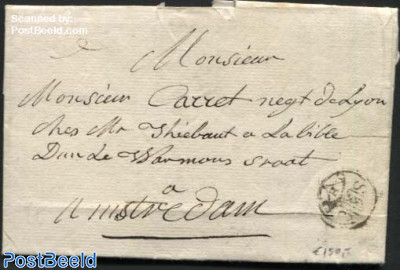 Scanned by:
PostBeeld.com
Monsieur
Monsieur Carret negt de Lyon
ches Mr Thiebaut a La bible
Dans Le Warmous straat
a
Amsterdam
€150,-
PostBeeld